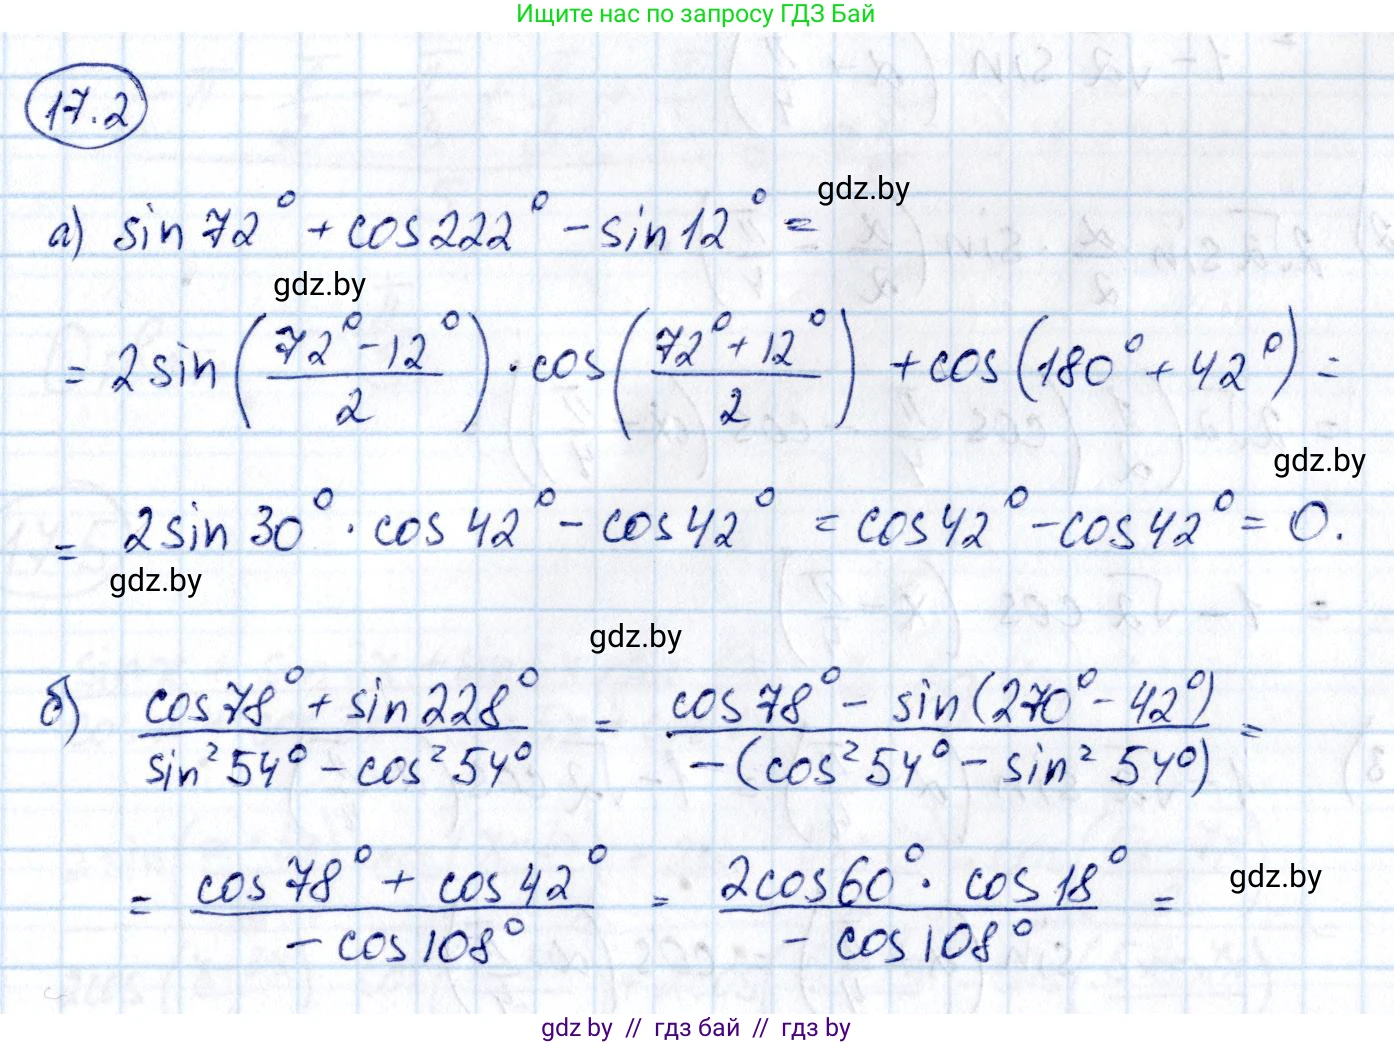 Ищите нас по запросу ГДЗ Бай
17.2
а) sin 72° + cos 222° − sin 12° =
gdz.by
gdz.by
= 2 sin ((72° − 12°)/2) · cos ((72° + 12°)/2) + cos (180° + 42°) =
gdz.by
= 2 sin 30° · cos 42° − cos 42° = cos 42° − cos 42° = 0.
gdz.by
gdz.by
б) (cos 78° + sin 228°)/(sin² 54° − cos² 54°) = (cos 78° − sin (270° − 42°))/(−(cos² 54° − sin² 54°)) =
= (cos 78° + cos 42°)/(− cos 108°) = (2 cos 60° · cos 18°)/(− cos 108°) =
gdz.by
gdz by // гдз бай // гдз by